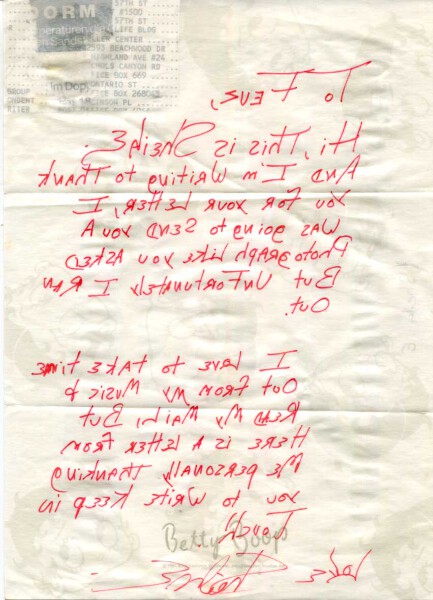 DORM
57TH ST
#1500
57TH ST
LIFE BLDG
CENTER
2593 BEACHWOOD DR
HIGHLAND AVE #24
NICHOLS CANYON RD
OFFICE BOX 669
ONTARIO ST
BOX 268043
To Feuz,
Hi, This is Sheila E.
And I'm writing to Thank
you For your letter, I
was going to send you A
Photograph like you Asked
But Unfortunately I Ran
Out.
I love to take time
Out From my Music &
Read My Mail, But
Here is A letter From
Me personally Thanking
you to Write Keep in
Touch!
Betty Boop
Love